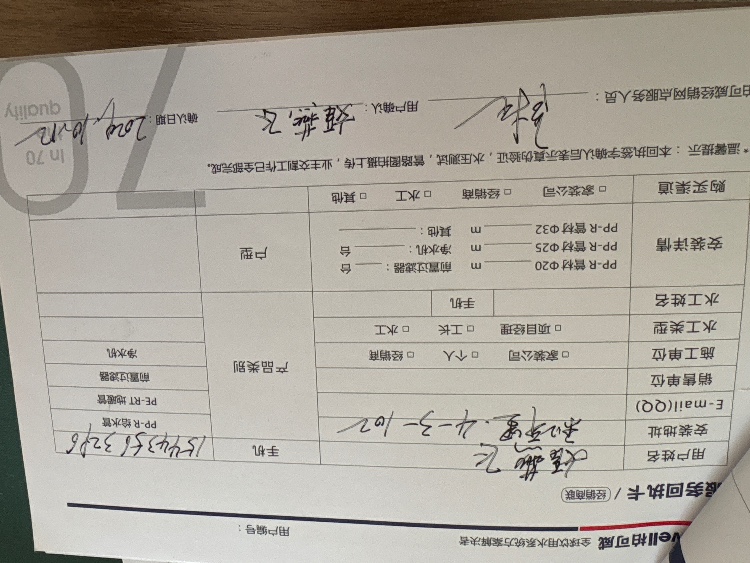 vell柏可威 全球饮用水系统方案解决者
用户编号：
服务回执卡 / 经销商联
用户姓名 手机
安装地址 4-3-102
E-mail(QQ)
销售单位
施工单位 □ 家装公司 □ 个人 □ 经销商
水工类型 □ 项目经理 □ 工长 □ 水工
水工姓名 手机
产品类别
PP-R 给水管
PE-RT 地暖管
前置过滤器
净水机
安装详情
PP-R 管材 Φ20 m 前置过滤器： 台
PP-R 管材 Φ25 m 净水机： 台
PP-R 管材 Φ32 m 其他：
户型
购买渠道 □ 家装公司 □ 经销商 □ 水工 □ 其他
*温馨提示：本回执签字确认后表示真伪验证，水压测试，管路图拍摄上传，业主交割工作已全部完成。
柏可威经销网点服务人员： 用户确认： 确认日期：
In 70
quality
70